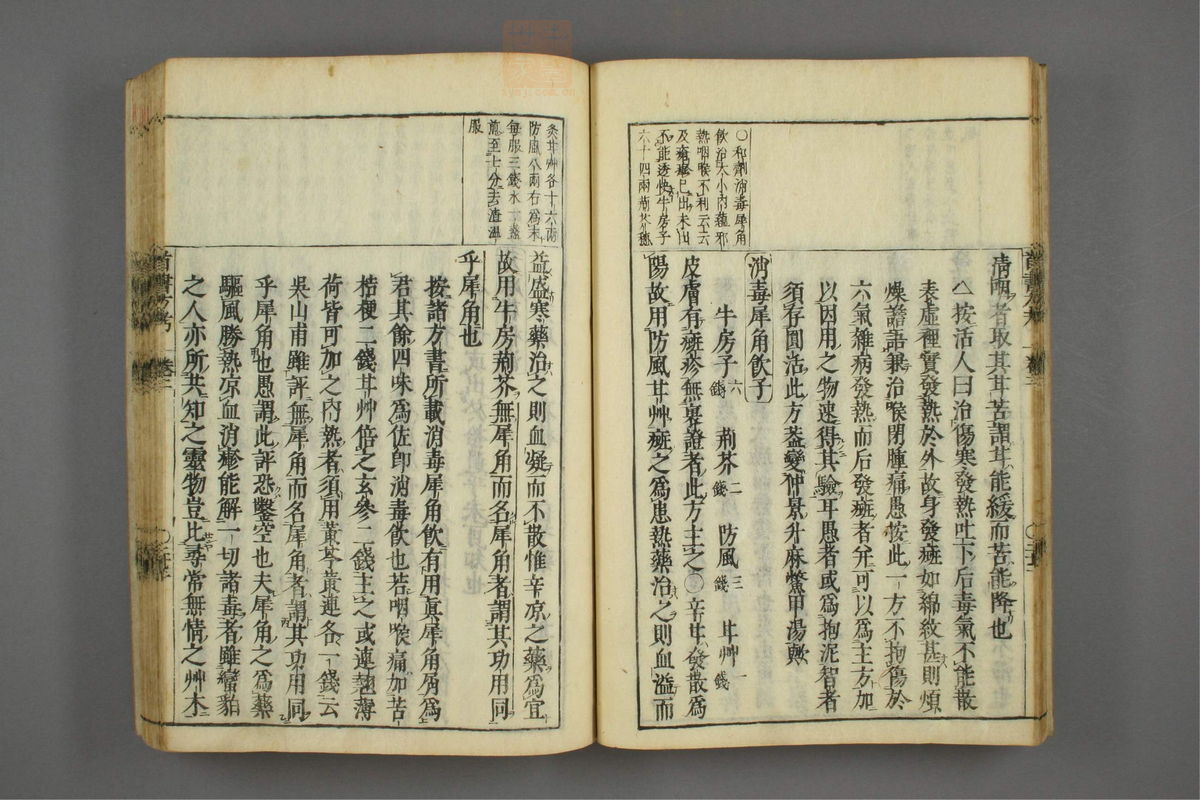 ○和劑消毒犀角
飲治大小内蘊邪
熱咽喉不利云云
及癰疹已出未出
不能透快牛房子
六十四兩荊芥穗
清明者取其甘苦謂甘能緩而苦能降也
△按活人曰治傷寒發熱吐下后毒氣不能散
表虛裡實發熱於外故身發癍如綿紋甚則煩
燥譫語兼治喉閉腫痛愚按此一方不拘傷於
六氣雜病發熱而后發癍者弁可以爲主方加
以因用之物速得其驗耳愚者或爲拘泥智者
須存圓活此方蓋變仲景升麻鱉甲湯歟
消毒犀角飲子
牛房子六錢 荊芥二錢 防風三錢 甘艸一錢
皮膚有癍疹無裏證者此方主之○辛甘發散爲
陽故用防風甘艸癍之爲患熱藥治之則血溢而
炙甘艸各十六兩
防風八兩右爲末
每服三錢水一盞
煎至七分去渣溫
服
益盛寒藥治之則血凝而不散惟辛凉之藥爲宜
故用牛房荊芥無犀角而名犀角者謂其功用同
乎犀角也
按諸方書所載消毒犀角飲有用眞犀角屑爲
君其餘四味爲佐即消毒飲也若咽喉痛加苦
桔梗二錢甘艸倍之玄參二錢主之或連翹薄
荷皆可加之内熱者須用黃芩黃連各一錢云
吳山甫雖評無犀角而名犀角者謂其功用同
乎犀角也愚謂此評恐鑿空也夫犀角之爲藥
驅風勝熱凉血消疹能解一切諸毒者雖蠻貊
之人亦所共知之靈物豈比尋常無情之艸木